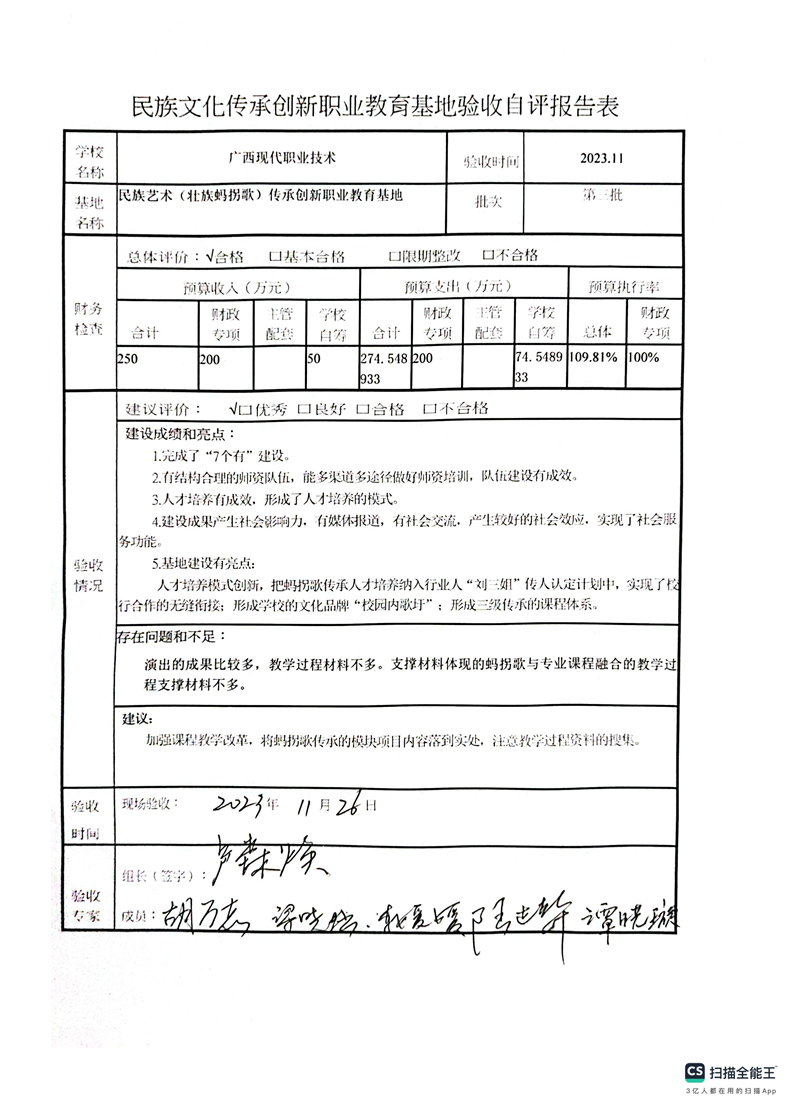 民族文化传承创新职业教育基地验收自评报告表
学校名称 广西现代职业技术 验收时间 2023.11
基地名称 民族艺术（壮族蚂拐歌）传承创新职业教育基地 批次 第三批
财务检查
总体评价：√合格 □基本合格 □限期整改 □不合格
预算收入（万元） 预算支出（万元） 预算执行率
合计 财政专项 主管配套 学校自筹 合计 财政专项 主管配套 学校自筹 总体 财政专项
250 200 50 274.548933 200 74.548933 109.81% 100%
验收情况
建议评价： √□优秀 □良好 □合格 □不合格
建设成绩和亮点：
1.完成了“7个有”建设。
2.有结构合理的师资队伍，能多渠道多途径做好师资培训，队伍建设有成效。
3.人才培养有成效，形成了人才培养的模式。
4.建设成果产生社会影响力，有媒体报道，有社会交流，产生较好的社会效应，实现了社会服
务功能。
5.基地建设有亮点：
人才培养模式创新，把蚂拐歌传承人才培养纳入行业人“刘三姐”传人认定计划中，实现了校
行合作的无缝衔接；形成学校的文化品牌“校园内歌圩”；形成三级传承的课程体系。
存在问题和不足：
演出的成果比较多，教学过程材料不多。支撑材料体现的蚂拐歌与专业课程融合的教学过
程支撑材料不多。
建议：
加强课程教学改革，将蚂拐歌传承的模块项目内容落到实处，注意教学过程资料的搜集。
验收时间 现场验收： 2023年 11月26日
验收专家
组长（签字）：
成员：胡万志 谭晓璇
CS 扫描全能王
3亿人都在用的扫描App